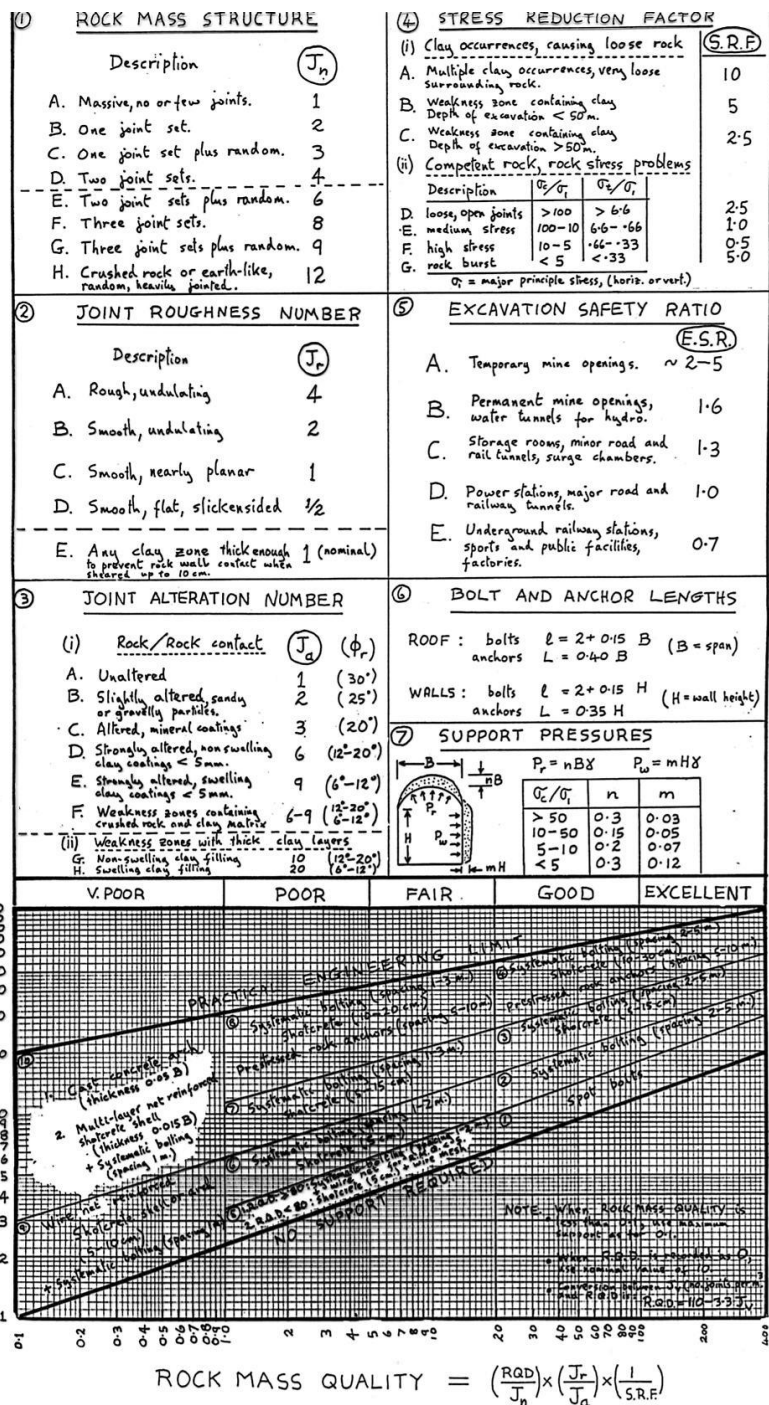 ① ROCK MASS STRUCTURE
Description Jn
A. Massive, no or few joints. 1
B. One joint set. 2
C. One joint set plus random. 3
D. Two joint sets. 4
E. Two joint sets plus random. 6
F. Three joint sets. 8
G. Three joint sets plus random. 9
H. Crushed rock or earth-like, 12
random, heavily jointed.
② JOINT ROUGHNESS NUMBER
Description Jr
A. Rough, undulating 4
B. Smooth, undulating 2
C. Smooth, nearly planar 1
D. Smooth, flat, slickensided 1/2
E. Any clay zone thick enough 1 (nominal)
to prevent rock wall contact when
sheared up to 10 cm.
③ JOINT ALTERATION NUMBER
(i) Rock/Rock contact Ja (ϕr)
A. Unaltered 1 (30°)
B. Slightly altered, sandy 2 (25°)
or gravelly particles.
C. Altered, mineral coatings 3 (20°)
D. Strongly altered, non swelling 6 (12°-20°)
clay coatings < 5mm.
E. Strongly altered, swelling 9 (6°-12°)
clay coatings < 5mm.
F. Weakness zones containing 6-9 (12°-20°)
crushed rock and clay matrix (6°-12°)
(ii) Weakness zones with thick clay layers
G. Non-swelling clay filling 10 (12°-20°)
H. Swelling clay filling 20 (6°-12°)
④ STRESS REDUCTION FACTOR
(i) Clay occurrences, causing loose rock S.R.F.
A. Multiple clay occurrences, very loose 10
surrounding rock.
B. Weakness zone containing clay 5
Depth of excavation < 50m.
C. Weakness zone containing clay 2.5
Depth of excavation > 50m.
(ii) Competent rock, rock stress problems
Description σc/σ1 σt/σ1
D. loose, open joints >100 > 6.6 2.5
E. medium stress 100-10 6.6-.66 1.0
F. high stress 10-5 .66-.33 0.5
G. rock burst < 5 <.33 5.0
σ1 = major principle stress, (horiz. or vert.)
⑤ EXCAVATION SAFETY RATIO
E.S.R.
A. Temporary mine openings. ~ 2-5
B. Permanent mine openings, 1.6
water tunnels for hydro.
C. Storage rooms, minor road and 1.3
rail tunnels, surge chambers.
D. Power stations, major road and 1.0
railway tunnels.
E. Underground railway stations, 0.7
sports and public facilities,
factories.
⑥ BOLT AND ANCHOR LENGTHS
ROOF: bolts l = 2+ 0.15 B (B = span)
anchors L = 0.40 B
WALLS: bolts l = 2+ 0.15 H (H = wall height)
anchors L = 0.35 H
⑦ SUPPORT PRESSURES
Pr = nBγ Pw = mHγ
B
nB
Pr
H
Pw
mH
σc/σ1 n m
> 50 0.3 0.03
10-50 0.15 0.05
5-10 0.2 0.07
<5 0.3 0.12
V. POOR POOR FAIR GOOD EXCELLENT
PRACTICAL ENGINEERING LIMIT
⑩
1. Cast concrete arch
(thickness 0.05 B)
2. Multi-layer net reinforced
shotcrete shell
(thickness 0.015B)
+ Systematic bolting
(spacing 1 m.)
⑨ Wire net reinforced
Shotcrete shell or arch
(5-10 cm)
+ Systematic bolting (spacing
⑧ Systematic bolting (spacing 1-3 m.)
Shotcrete (10-20 cm)
Prestressed rock anchors (spacing 5-10m)
⑦ Systematic bolting (spacing 1-3 m.)
Shotcrete (5-15 cm)
⑥ Systematic bolting (spacing 1-2 m.)
Shotcrete (5 cm)
⑤ 1. R.Q.D > 80: Systematic bolting (spacing 1-2 m.)
2. R.Q.D < 80: Shotcrete (5 cm) + wire mesh
④ Systematic bolting (spacing 2-5 m.)
Shotcrete (10-30 cm)
Prestressed rock anchors (spacing 5-10 m.)
③ Systematic bolting (spacing 2-5 m.)
Shotcrete (5-15 cm)
② Systematic bolting (spacing 2-5 m.)
① Spot bolts
NO SUPPORT REQUIRED
NOTE. When ROCK MASS QUALITY is
less than 0.1, use maximum
support as for 0.1.
When R.Q.D. is recorded as 0,
use nominal value of 10.
Conversion between Jv (no. joints per m³)
and R.Q.D is: R.Q.D. = 110-3.3 Jv
0.1 0.2 0.3 0.4 0.5 0.6 0.7 0.8 0.9 1.0 2 3 4 5 6 7 8 9 10 20 30 40 50 60 70 80 100 200 400
ROCK MASS QUALITY = (RQD/Jn) × (Jr/Ja) × (1/S.R.F.)